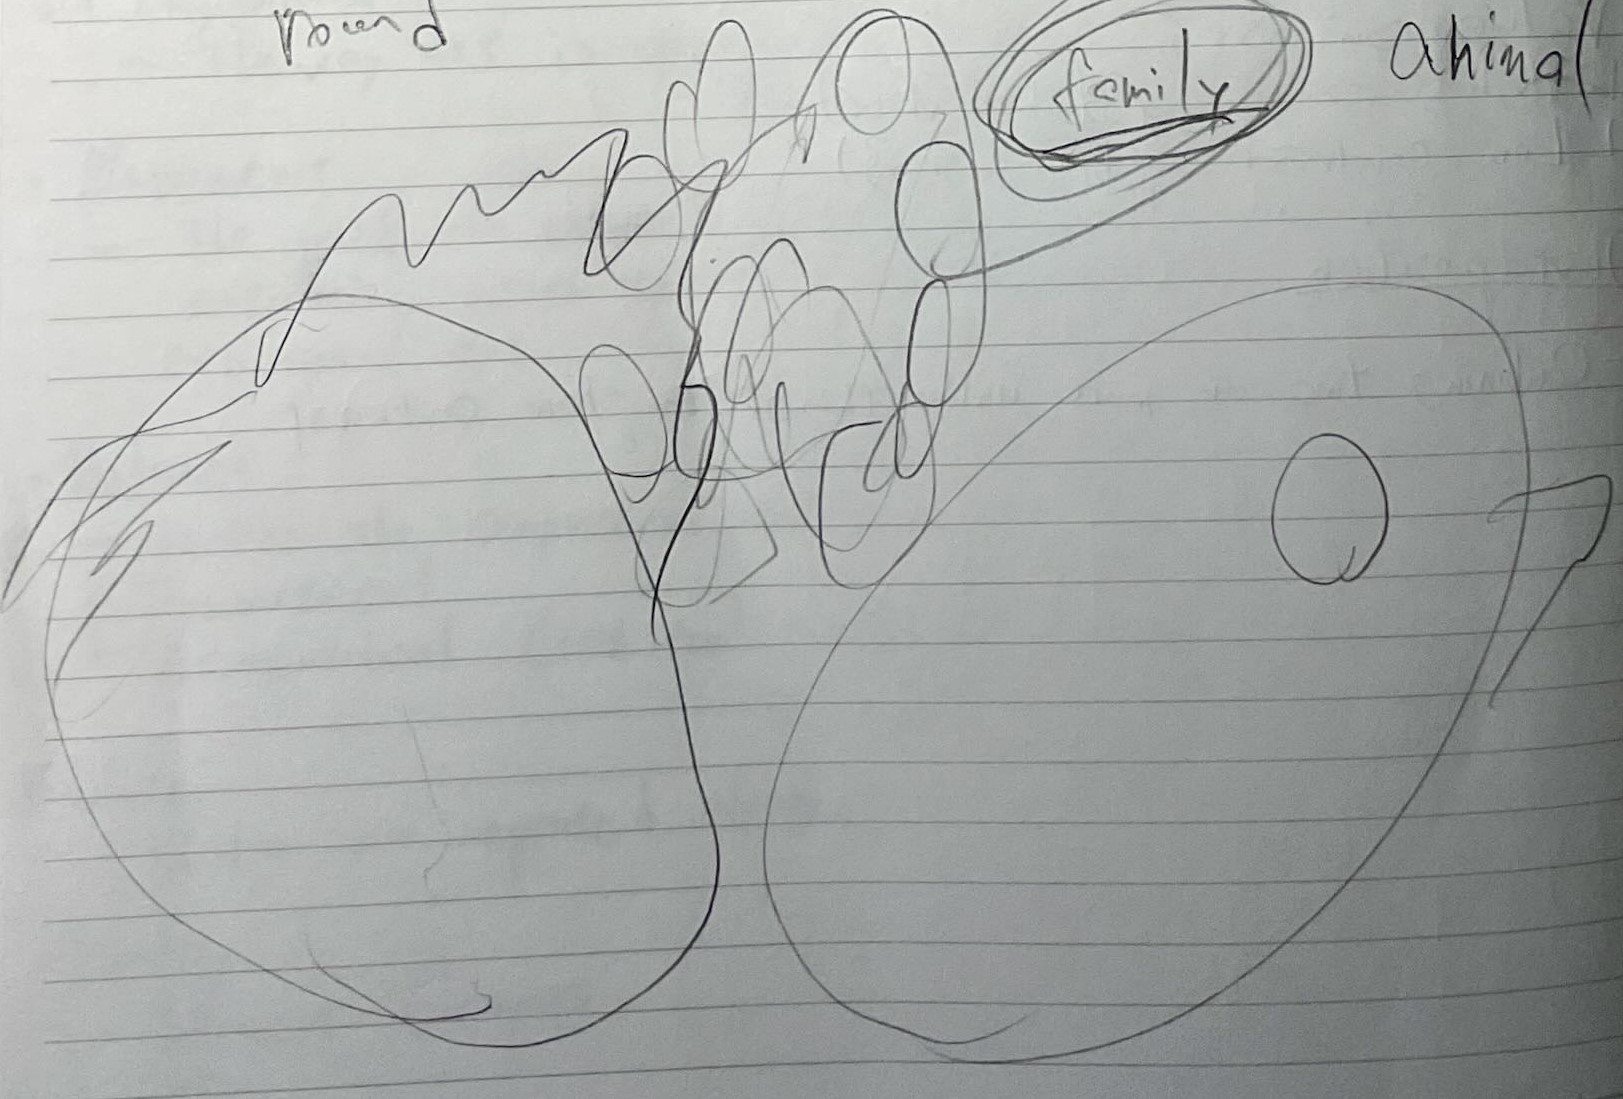 round
family
animal